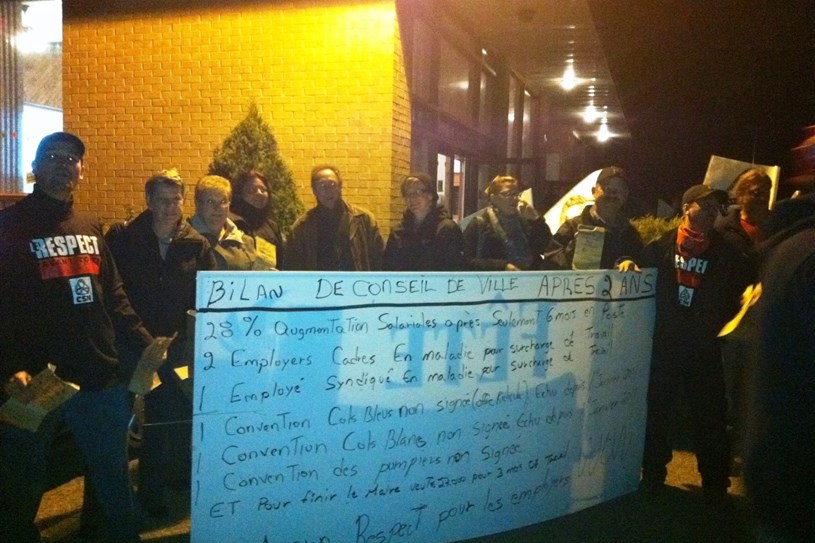 RESPECT
CSN
RESPE
BILAN DE CONSEIL DE VILLE APRES 2 ANS
28 % augmentation Salariales après Seulement 6 mois en Poste
2 Employers Cadres En maladie pour surcharge de Travail
1 Employé Syndiqué En maladie pour surcharge de
1 Convention Cols Bleus non signée Echu depuis
1 Convention Cols Blancs non Signée Echu depuis
1 Convention des pompiers non Signée
ET Pour finir le Maire pour 3 mois de
Respect pour les employés